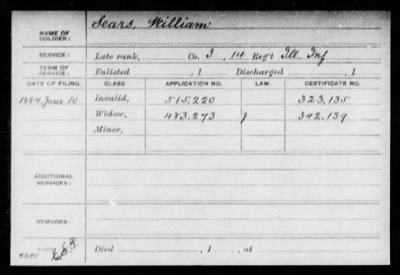 NAME OF SOLDIER: Sears, William
SERVICE: Late rank, Co. I, 14 Reg't Ill. Inf
TERM OF SERVICE: Enlisted , 1 Discharged , 1
DATE OF FILING. CLASS APPLICATION NO. LAW. CERTIFICATE NO.
1884, June 10 Invalid, 515.220 323.135
Widow, 483.273 342.139
Minor,
ADDITIONAL SERVICES:
REMARKS:
Died , 1 , at